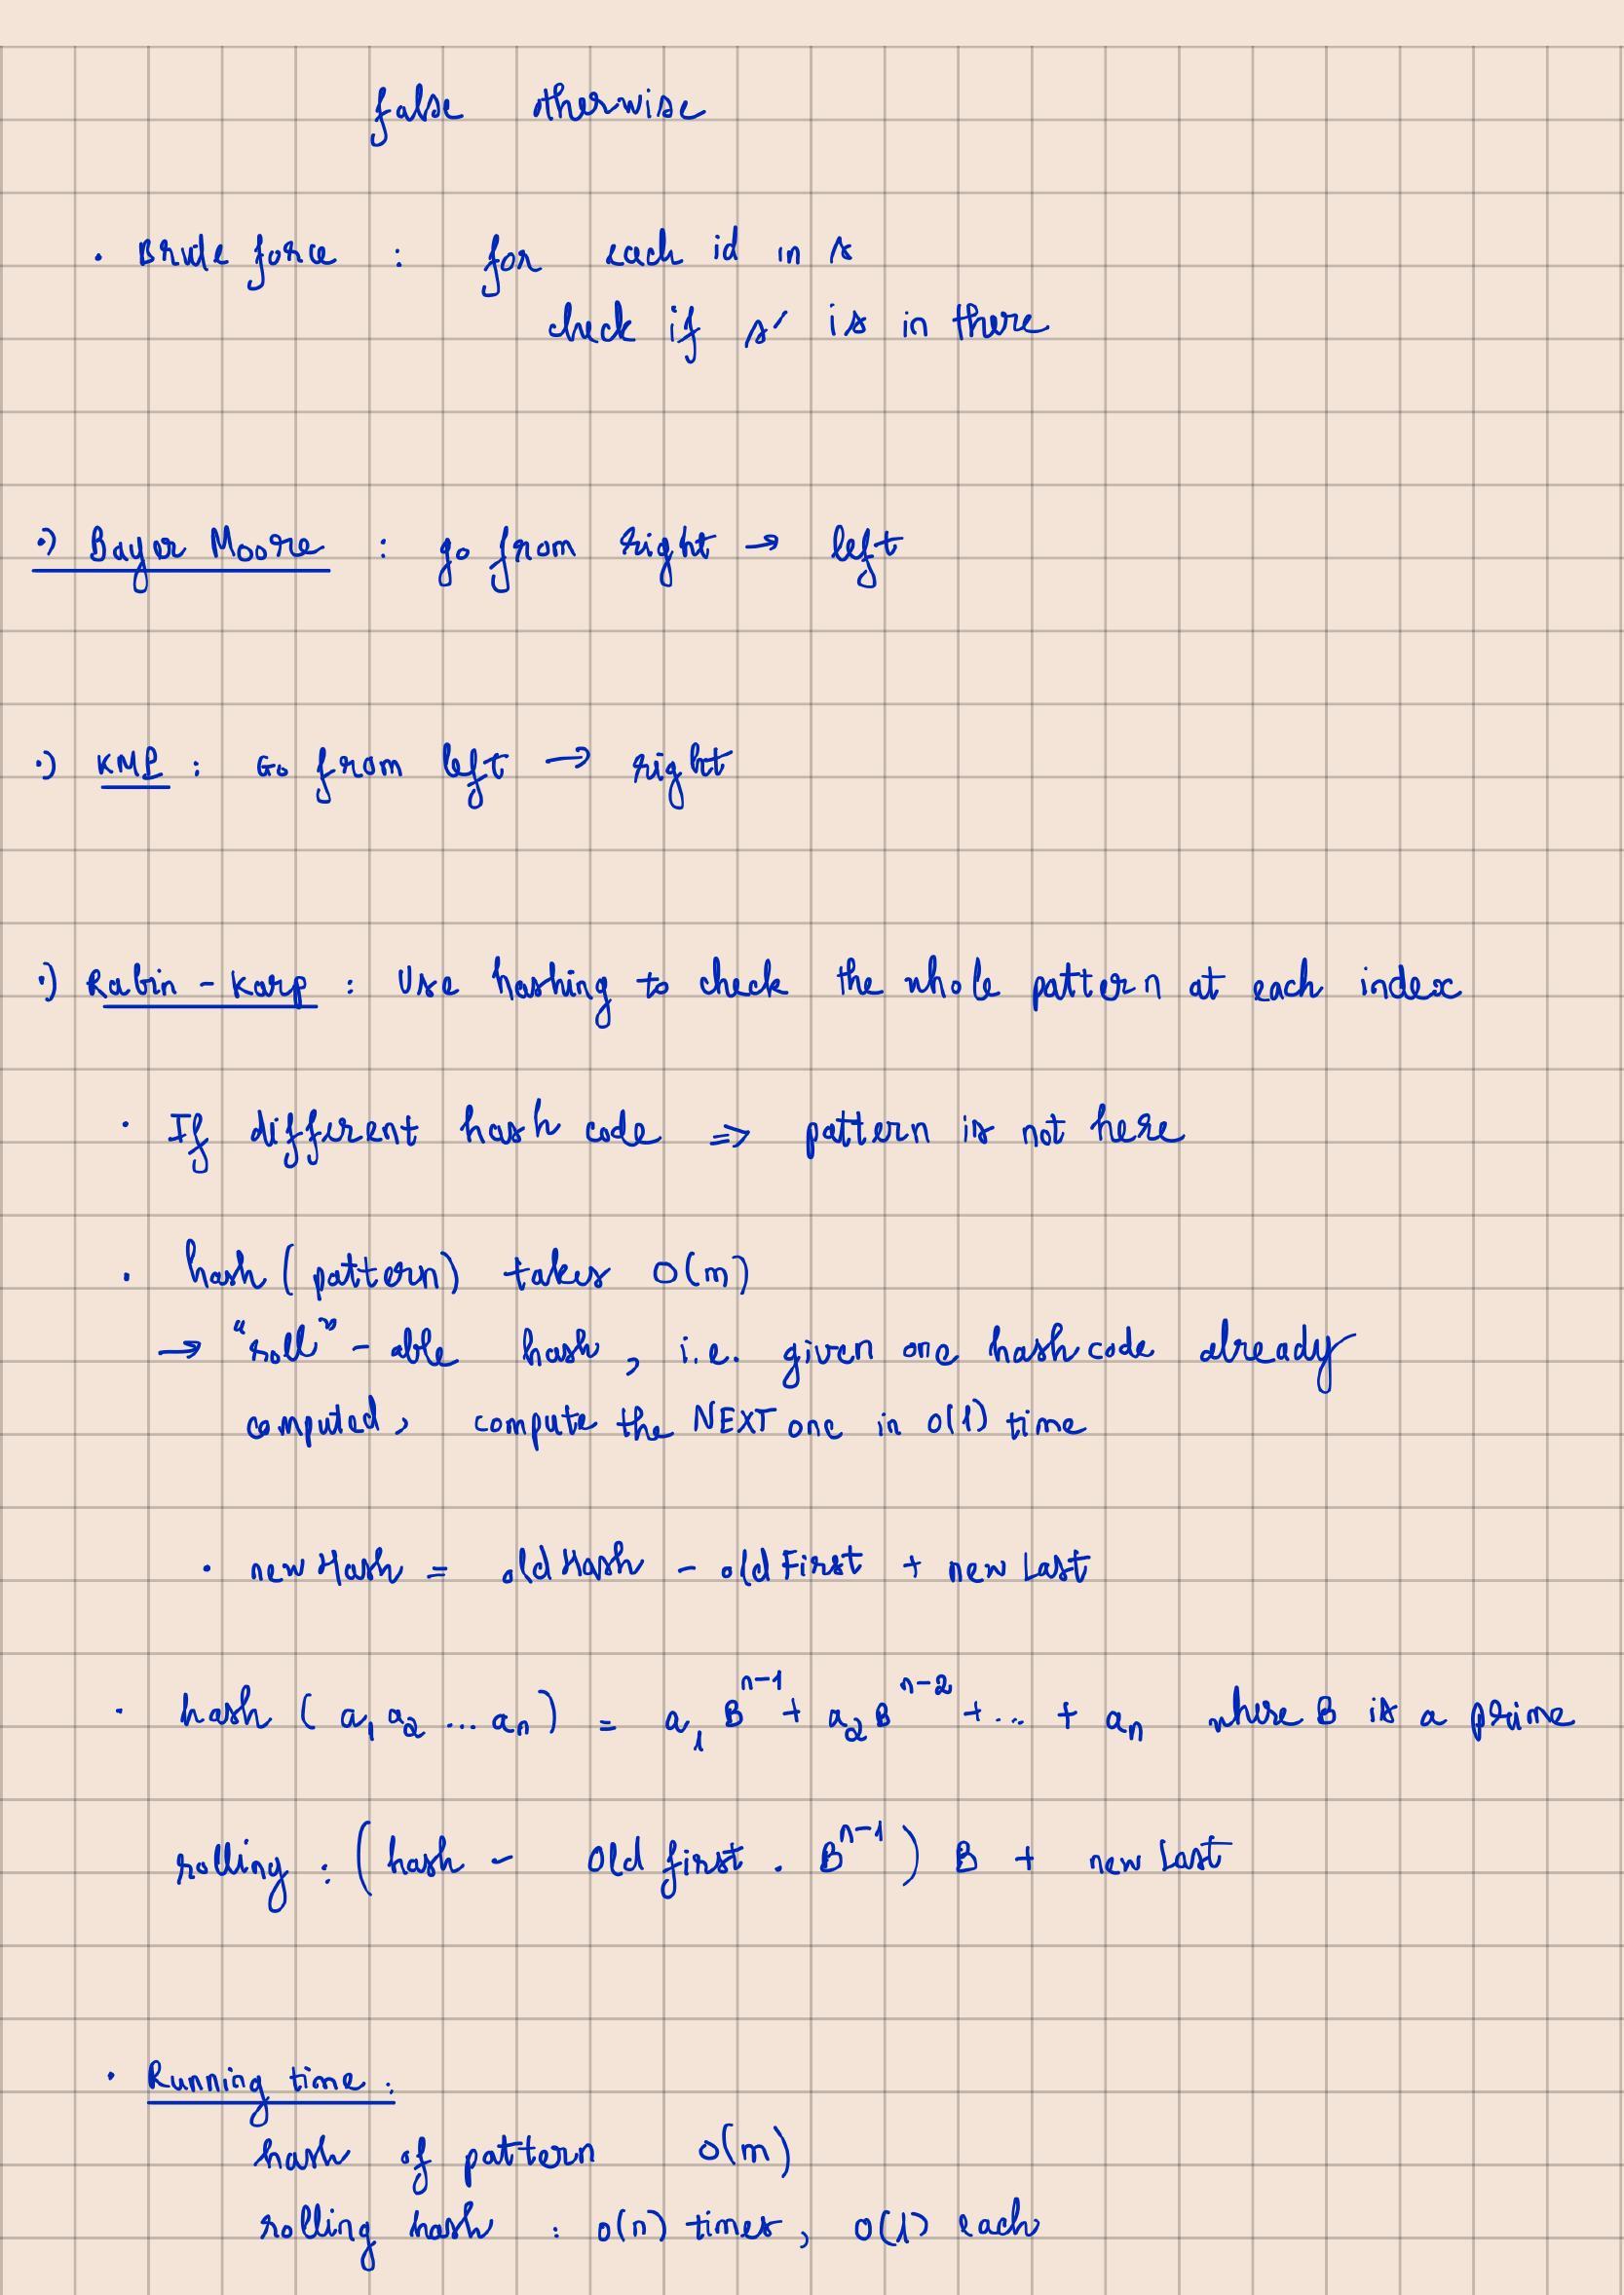 false otherwise
. Brute force : for each id in s
check if s' is in there
·) Bayer Moore : go from right → left
·) KMP : Go from left → right
·) Rabin - Karp : Use hashing to check the whole pattern at each index
· If different hash code => pattern is not here
· hash (pattern) takes O(m)
→ "roll" - able hash, i.e. given one hashcode already
computed, compute the NEXT one in O(1) time
· newHash = oldHash - oldFirst + newLast
· hash ( a₁ a₂ ... aₙ ) = a₁ Bⁿ⁻¹ + a₂ Bⁿ⁻² + ... + aₙ where B is a prime
rolling : (hash - Old first . Bⁿ⁻¹) B + new Last
· Running time :
hash of pattern O(m)
rolling hash : O(n) times, O(1) each